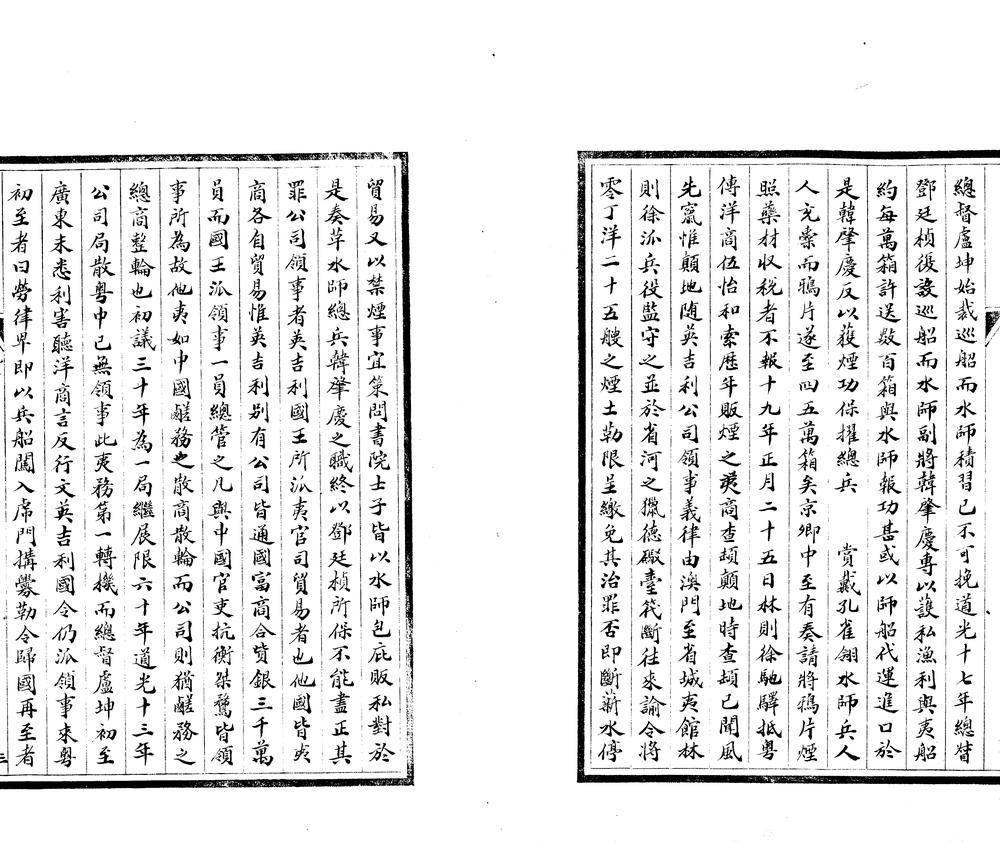 總督盧坤始裁巡船而水師積習已不可挽道光十七年總督
鄧廷楨復設巡船而水師副將韓肇慶專以護私漁利與夷船
約每萬箱許送數百箱與水師報功甚或以師船代運進口於
是韓肇慶反以獲煙功保擢總兵　賞戴孔雀翎水師兵人
人充橐而鴉片遂至四五萬箱矣京卿中至有奏請將鴉片煙
照藥材收稅者不報十九年正月二十五日林則徐馳驛抵粵
傳洋商伍怡和索歷年販煙之夷商查頓顛地時查頓已聞風
先竄惟顛地隨英吉利公司領事義律由澳門至省城夷館林
則徐派兵役監守之並於省河之獵德礮臺筏斷往來諭令將
零丁洋二十五艘之煙土勒限呈繳免其治罪否即斷薪水停
貿易又以禁煙事宜策問書院士子皆以水師包庇販私對於
是奏革水師總兵韓肇慶之職終以鄧廷楨所保不能盡正其
罪公司領事者英吉利國王所派夷官司貿易者也他國皆夷
商各自貿易惟英吉利別有公司皆通國富商合貲銀三千萬
員而國王派領事一員總管之凡與中國官吏抗衡桀驁皆領
事所為故他夷如中國鹺務之散商散輪而公司則猶鹺務之
總商整輪也初議三十年為一局繼展限六十年道光十三年
公司局散粵中已無領事此夷務第一轉機而總督盧坤初至
廣東未悉利害聽洋商言反行文英吉利國令仍派領事來粵
初至者曰勞律卑即以兵船闖入虎門搆釁勒令歸國再至者
三